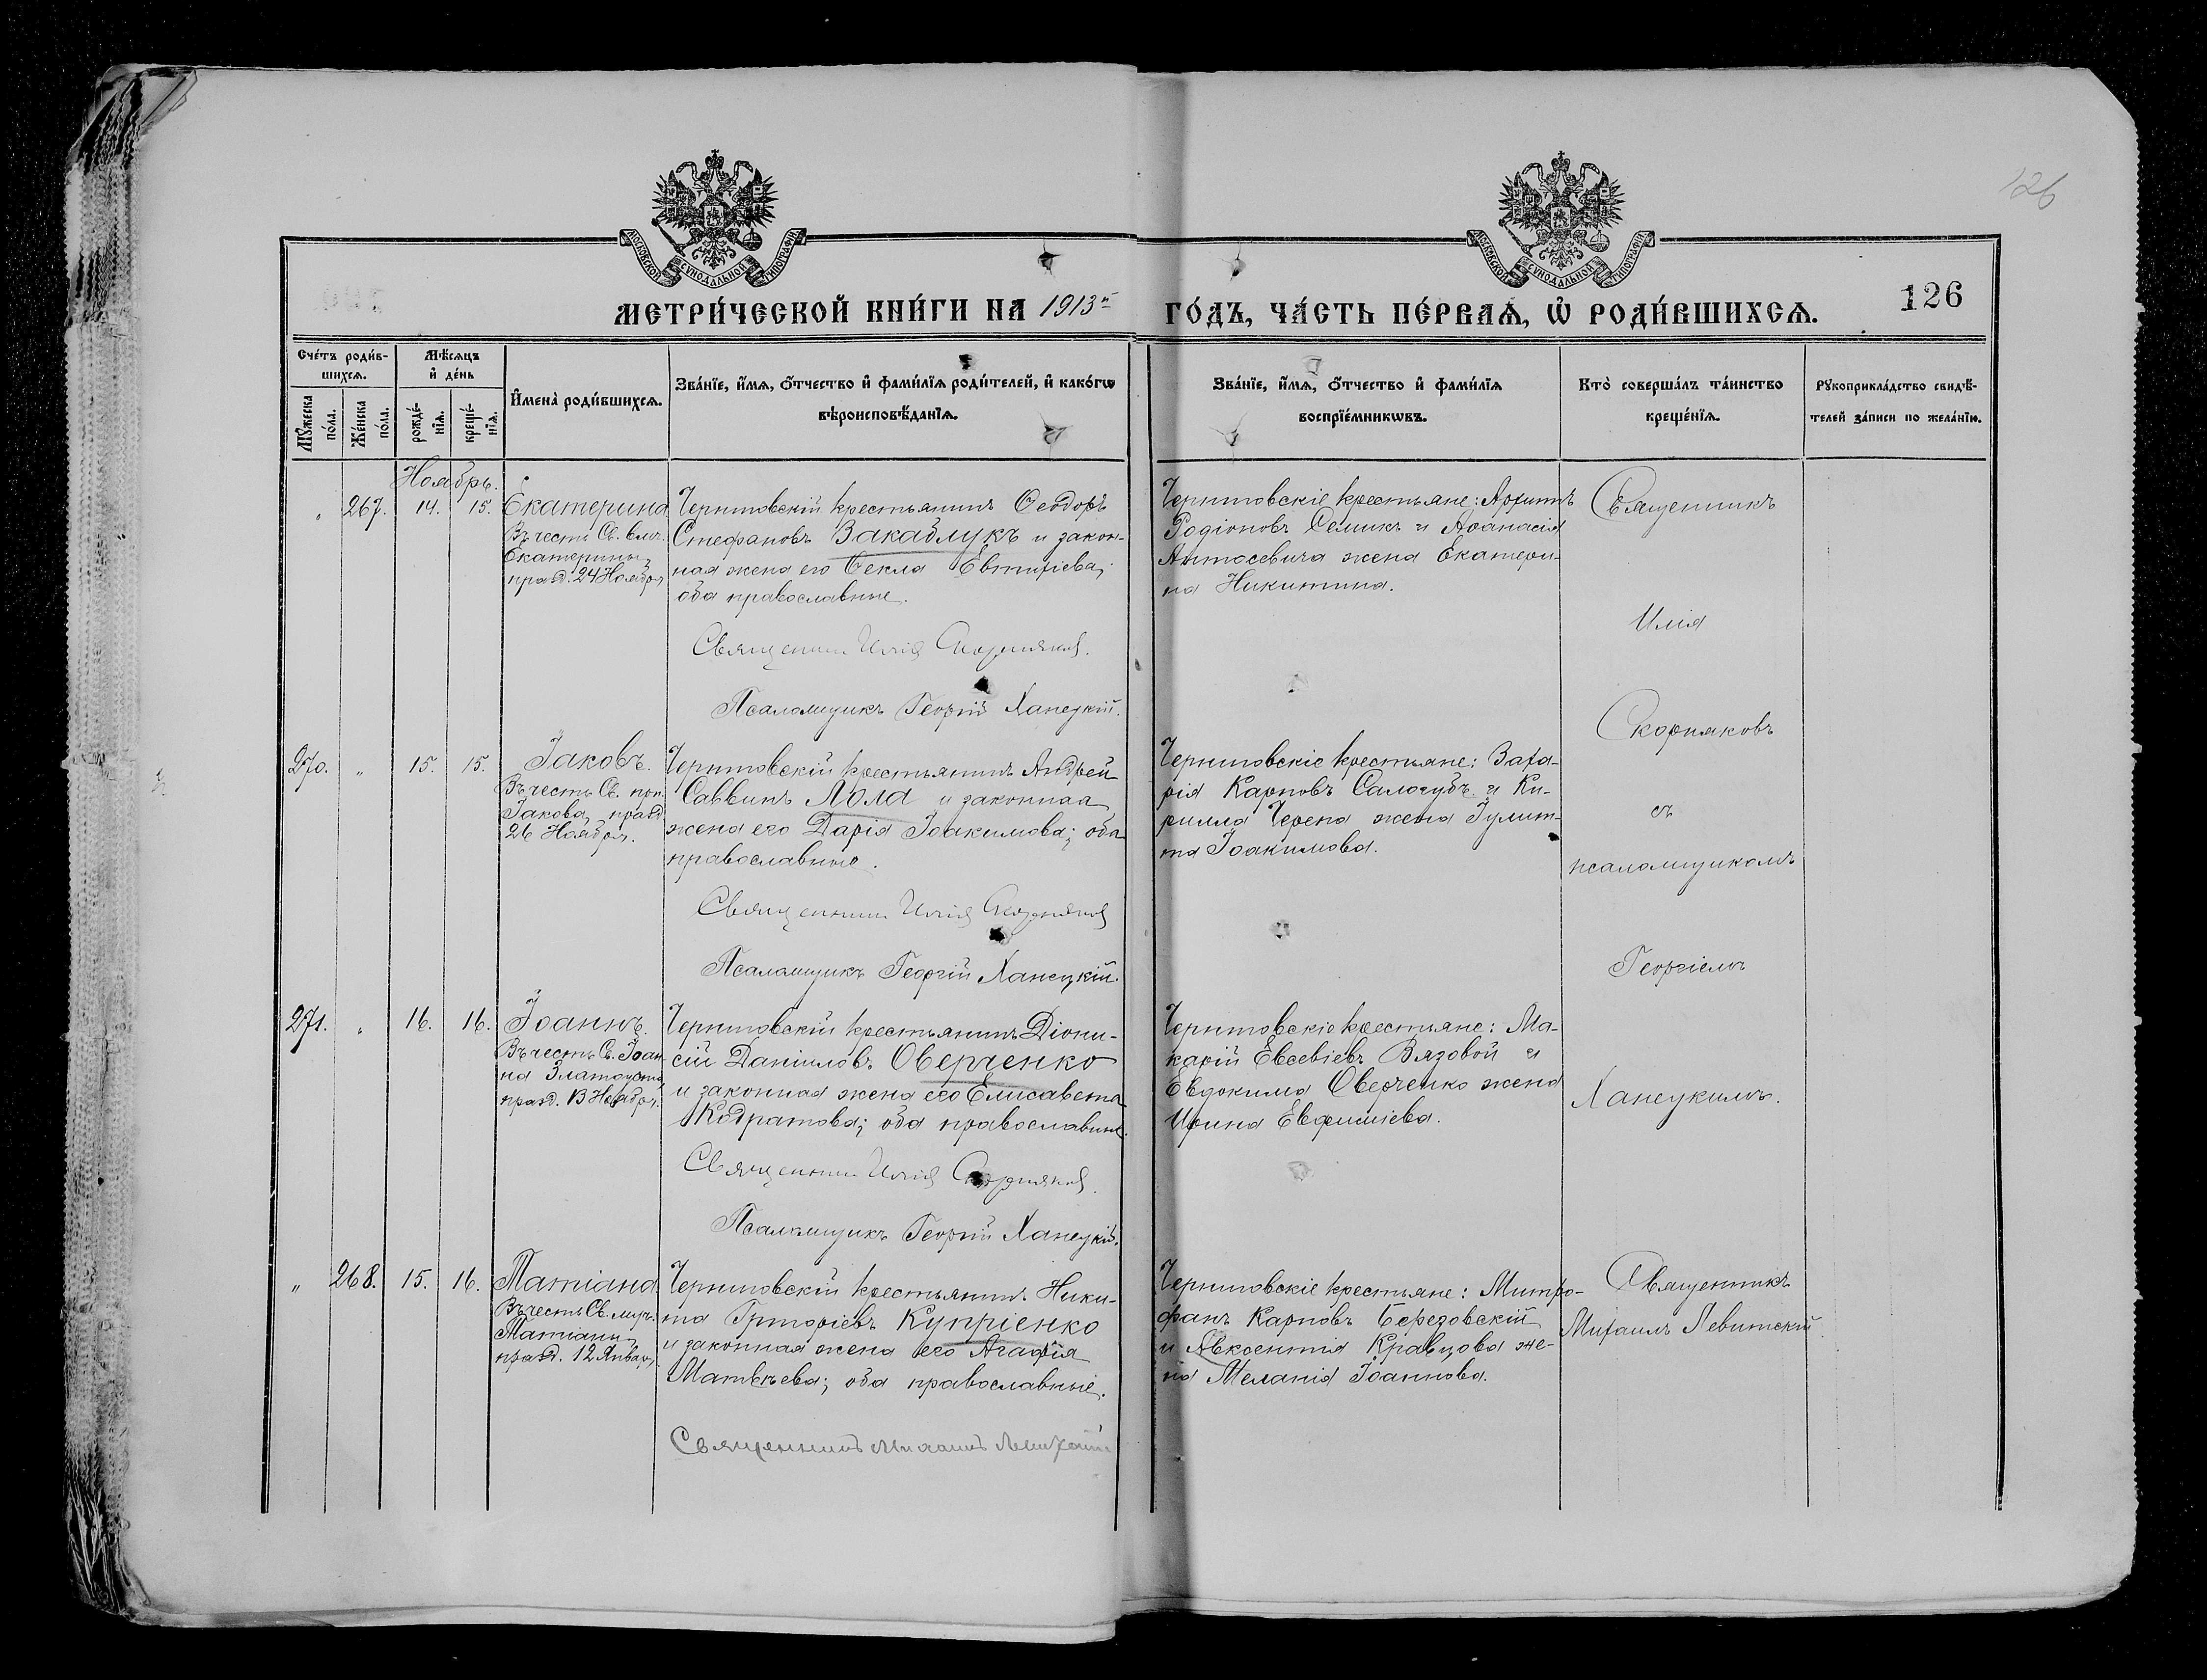 126
МОСКОВСКОЙ СУНОДАЛЬНОЙ ТИПОГРАФІИ
МОСКОВСКОЙ СУНОДАЛЬНОЙ ТИПОГРАФІИ
МЕТРИ́ЧЕСКОЙ КНИ́ГИ НА 1913й ГО́ДЪ, ЧА́СТЬ ПЕ́РВАѦ, Ѡ҆ РОДИ́ВШИХСѦ.
126
Сче́тъ роди́в-
шихсѧ.
Мꙋ́жеска по́ла.
Же́нска по́ла.
Мѣ́сѧцъ
и҆ де́нь
рожде́-нїѧ.
креще́-нїѧ.
И҆мена̀ роди́вшихсѧ.
Зва́нїе, и҆́мѧ, ѻ҆́тчество и҆ фами́лїѧ роди́телей, и҆ како́гѡ
вѣроисповѣ́данїѧ.
Зва́нїе, и҆́мѧ, ѻ҆́тчество и҆ фами́лїѧ
воспрїе́мникѡвъ.
Кто̀ соверша́лъ та́инство
креще́нїѧ.
Рꙋкоприкла́дство свидѣ́-
телей за́писи по жела́нїю.
Ноябрь.
„ 267. 14. 15.
Екатерина
Въ честь Св. влм.
Екатерины,
празд. 24 Ноября
Черниговскій крестьянинъ Ѳеодоръ
Стефановъ Закаблукъ и закон-
ная жена его Ѳекла Евтихіева;
оба православные.
Священникъ Илія Скорняковъ.
Псаломщикъ Георгій Ханецкій.
Черниговскіе крестьяне: Архиппъ
Родіоновъ Семикъ и Аѳанасія
жена Екатери-
на Никитина.
Священникъ
Илія
Скорняковъ
съ
псаломщикомъ
Георгіемъ
Ханецкимъ.
270. „ 15. 15.
Іаковъ.
Въ честь Св. 
Іакова, празд
26 Ноября.
Черниговскій крестьянинъ Андрей
Саввинъ Лола и законная
жена его Дарія Іоакимова; оба
православные.
Священникъ Илія Скорняковъ
Псаломщикъ Георгій Ханецкій.
Черниговскіе крестьяне: Заха-
рія Карповъ Салогубъ и Ки-
рилла Черепа жена Іулит-
та Іоакимова.
271. „ 16. 16.
Іоаннъ.
Въ честь Св. Іоан
на Златоуста,
празд. 13 Ноября.
Черниговскій крестьянинъ Діони-
сій Даніиловъ Оверченко
и законная жена его Елисавета
Кодратова; оба православные.
Священникъ Илія Скорняковъ.
Псаломщикъ Георгій Ханецкій.
Черниговскіе крестьяне: Ма-
карій Евсевіевъ Вязовой и
Евдокима Оверченко жена
Ирина Евфиміева.
„ 268. 15. 16.
Татіана.
Въ честь Св. муч.
Татіаны,
празд. 12 Января.
Черниговскій крестьянинъ Ники-
та Григоріевъ Купріенко
и законная жена его Агафія
Матвѣева; оба православные.
Священникъ Михаилъ Левитскій
Черниговскіе крестьяне: Митро-
фанъ Карповъ Березовскій
и Авксентія Кравцова же-
на Меланія Іоаннова.
Священникъ
Михаилъ Левитскій